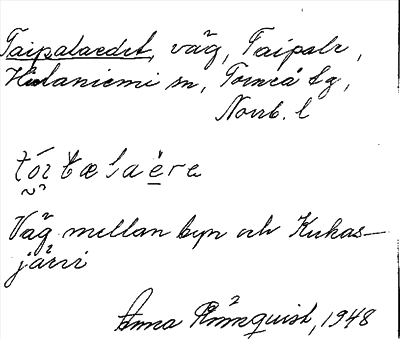 Taipalaedet, väg, Taipale,
Hietaniemi sn, Torneå lg,
Norrb. l
Väg mellan byn och Kukas-
järvi
Anna Rönnquist, 1948